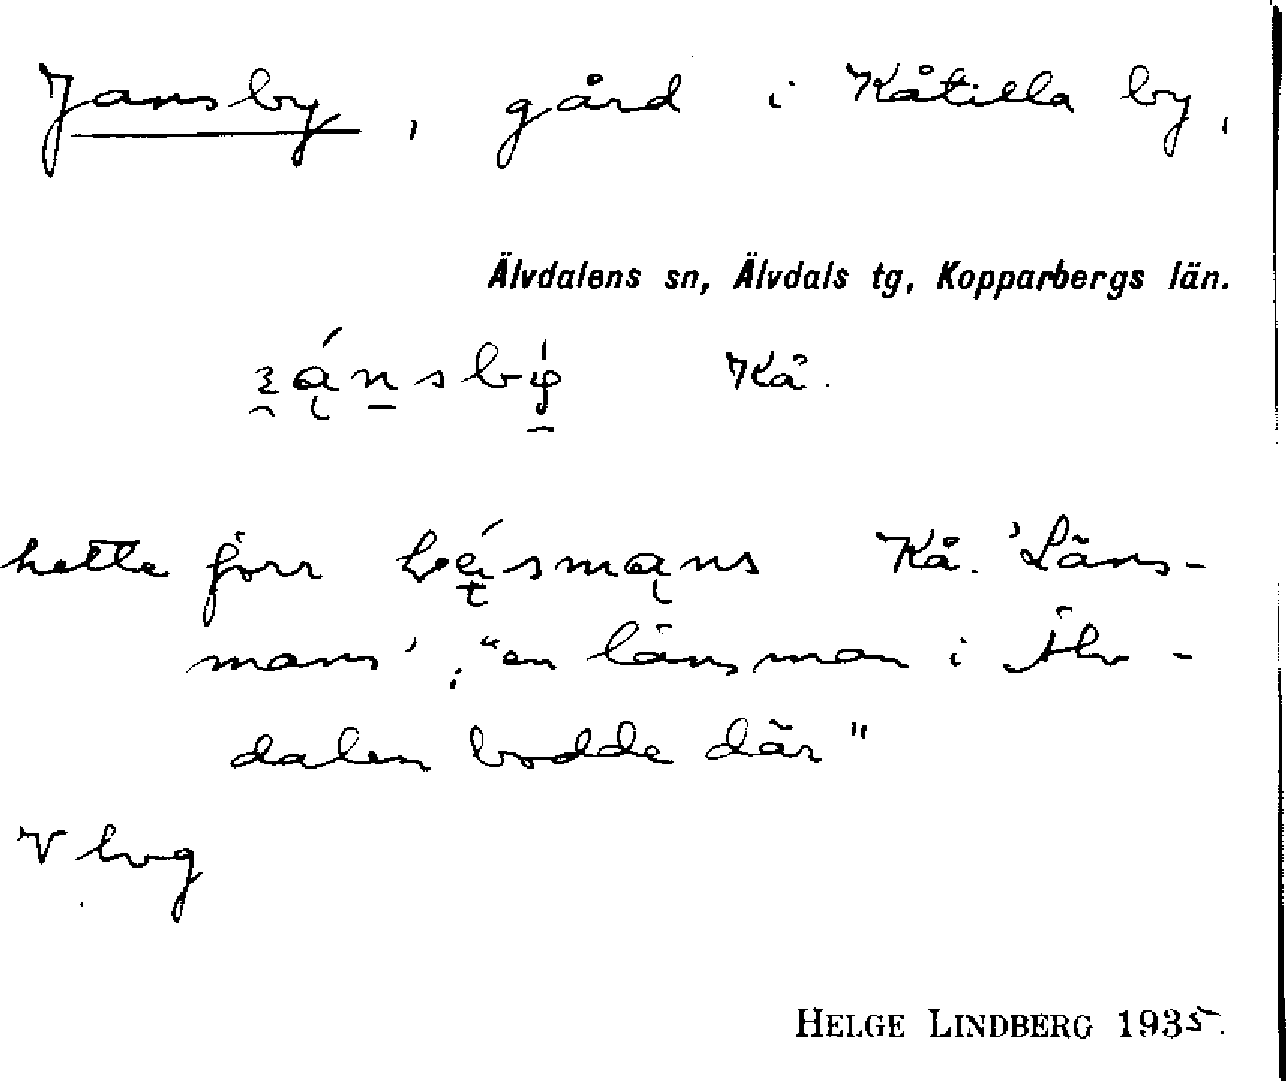 Jansby, gård i Kåtilla by,
Älvdalens sn, Älvdals tg, Kopparbergs län.
Kå.
hette förr Kå. 'Läns-
mans'; "en länsman i Älv-
dalen bodde där"
V lvg
HELGE LINDBERG 1935.